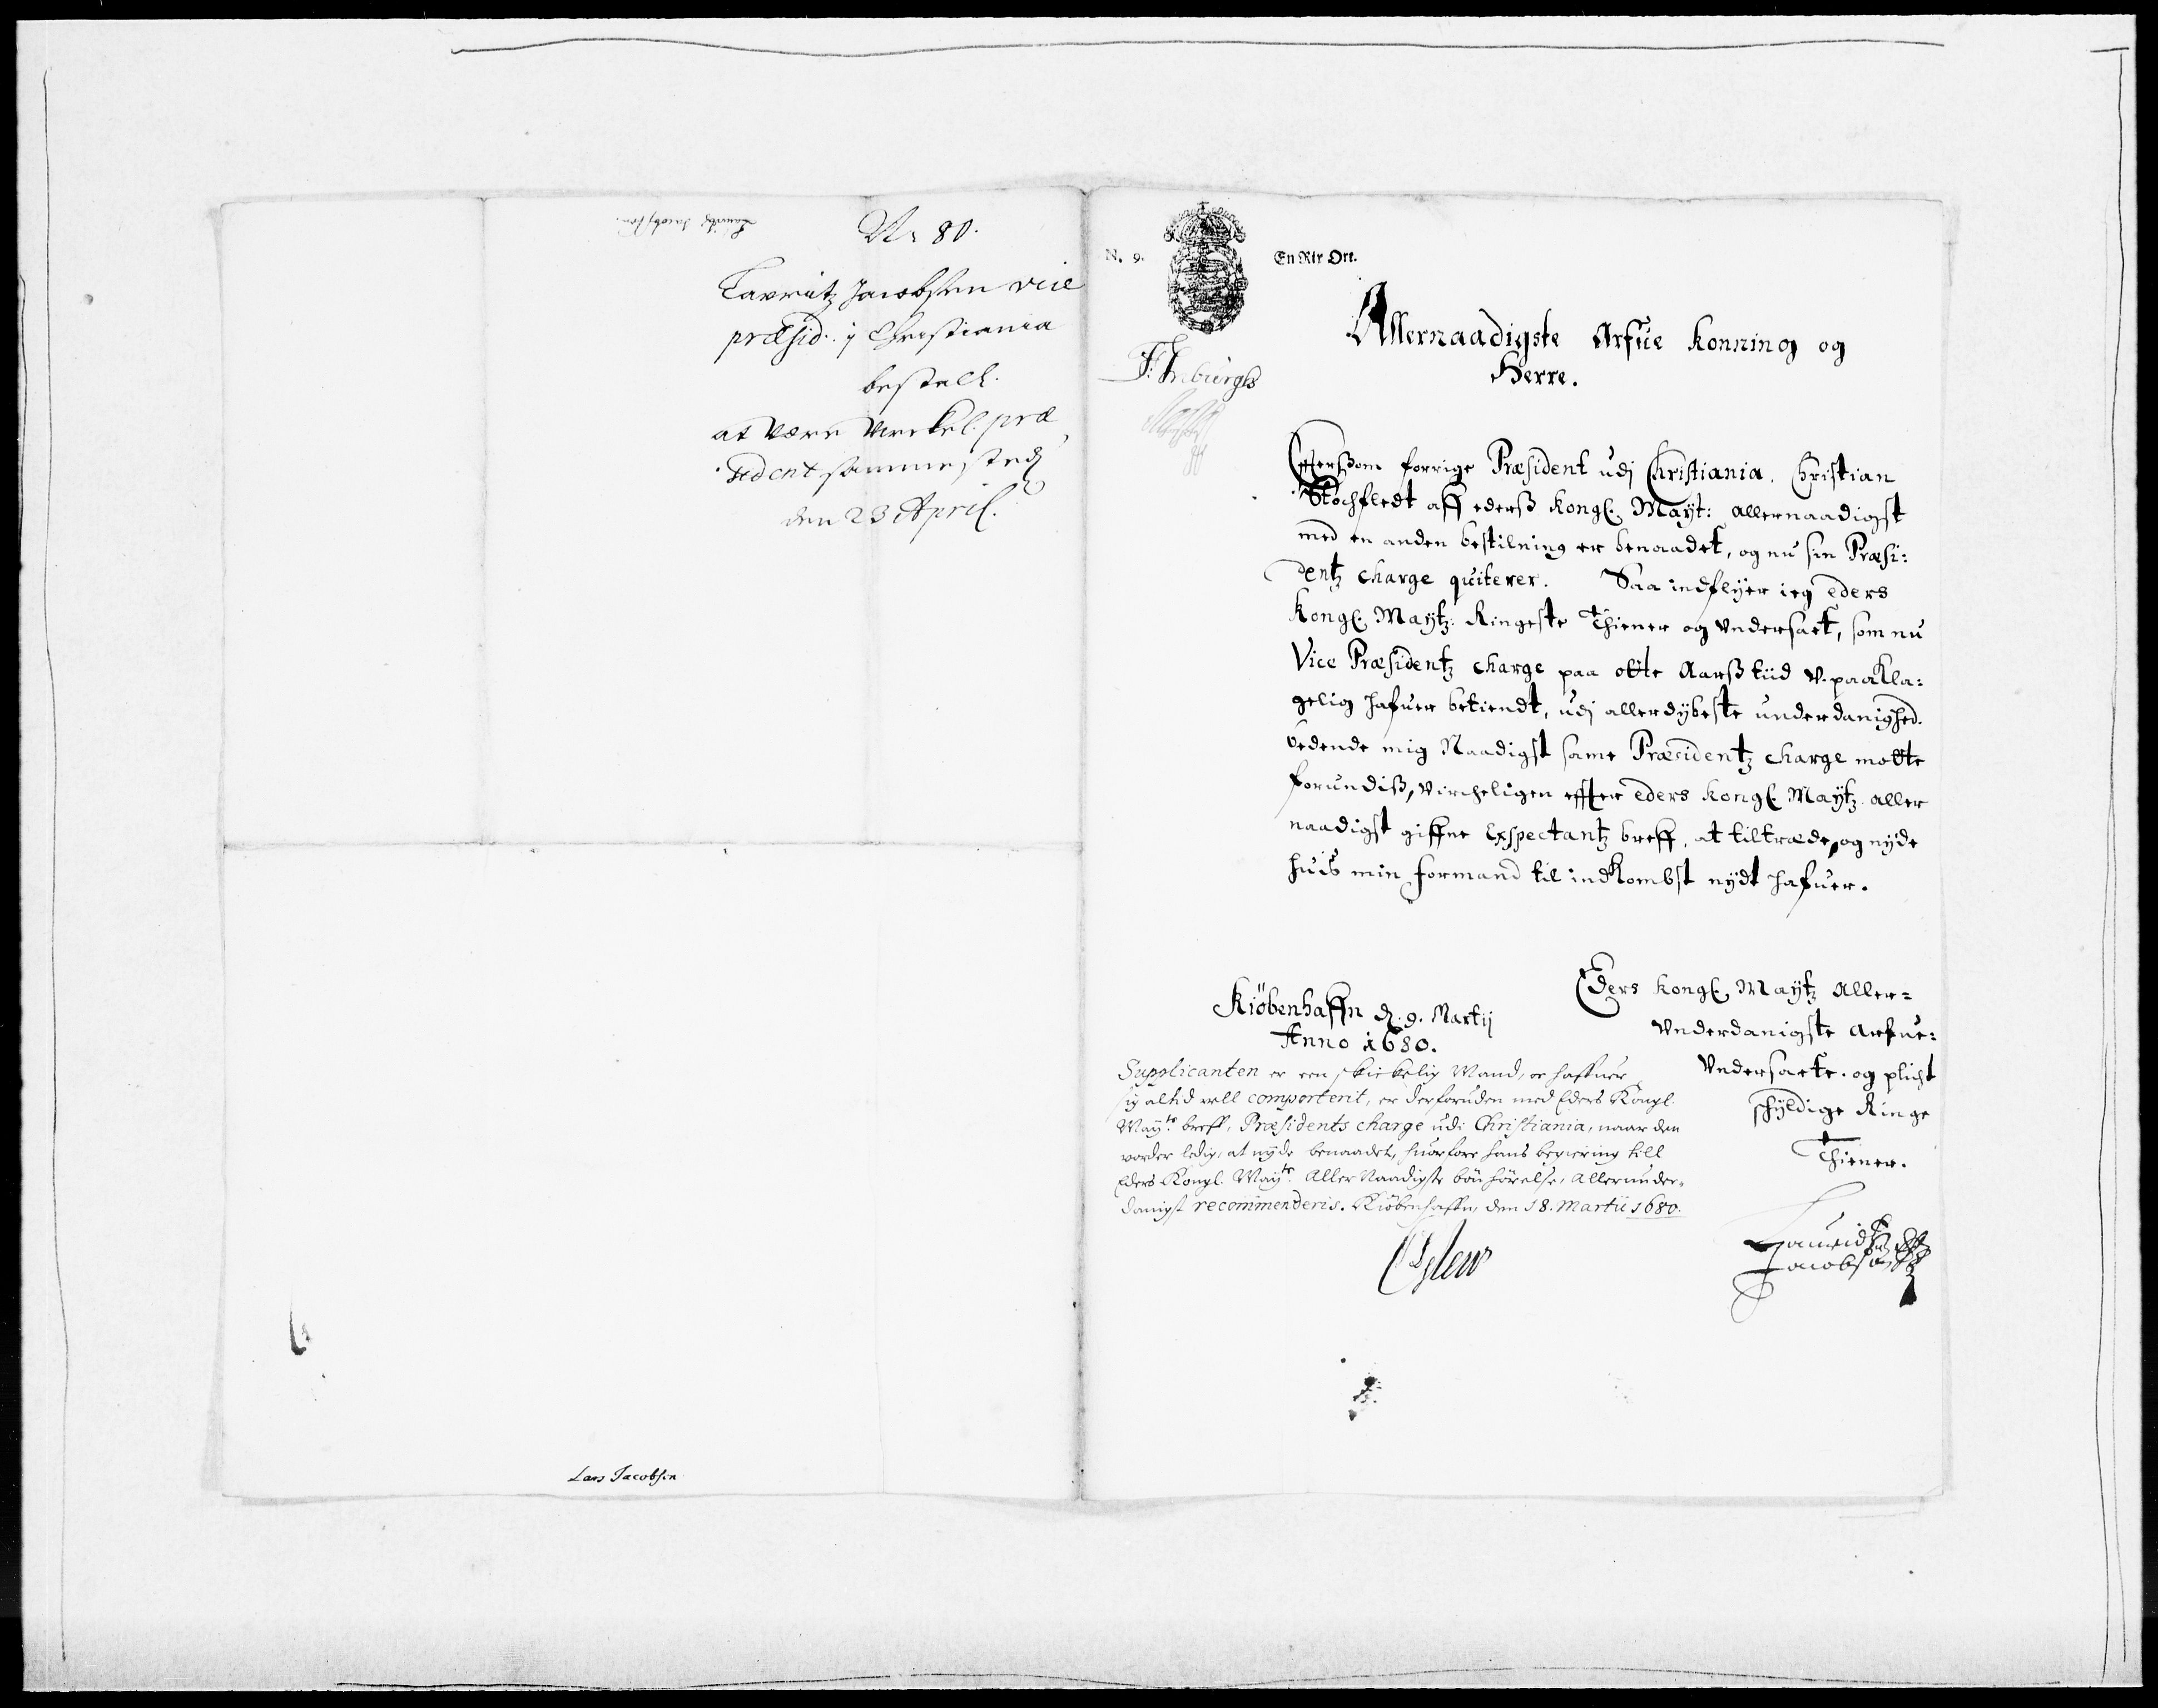 Lauritz Jacobsen
No 80.
Lauritz Jacobsen vice
præsid. i Christiania
bestall.
at være Verkel. præ
sident sammesteds
den 23 April.
Lars Jacobsen
N. 9. En Rix Ort.
Allernaadigste Arfue Konning og
Herre.
Efterßom forrige Præsident udj Christiania, Christian
Stochfledt aff ederß Kongl. Mayt: allernaadigst
med en anden bestilning er benaadet, og nu sin Præsi:
dentz charge quiterer. Saa indflyer ieg eders
Kongl. Maytz Ringeste Thiener og Vndersaet, som nu
Vice Præsidentz charge paa otte Aarß tiid V-paakla:
gelig hafuer betiendt, udj allerdybeste underdanighed.
bedende mig Naadigst same Præsidentz charge motte
forundiß, Vircheligen effter eders Kongl. Maytz aller
naadigst giffne Expectantz breff, at tiltræde, og nyde
huis min formand til indkombst nydt hafuer.
Kiöbenhaffn d. 9. Martij
Anno 1680.
Eders Kongl. Maytz Aller=
Vnderdanigste Arfue:
Vndersaete og plicht
schyldige Ringe
Thiener.
Lauridtz
Jacobsen
Supplicanten er een skickelig Mand, oc haffuer
sig altid vell comporterit, er desforuden med Eders Kongl.
Mayts breff, Præsidents charge udi Christiania, naar den
vorder ledig, at nyde benaadet, huorfore hans begiering till
Eders Kongl. Mayts Aller Naadigste bönhörelse, Allerunder=
danigst recommenderis. Kiöbenhaffn, den 18. Martii 1680.